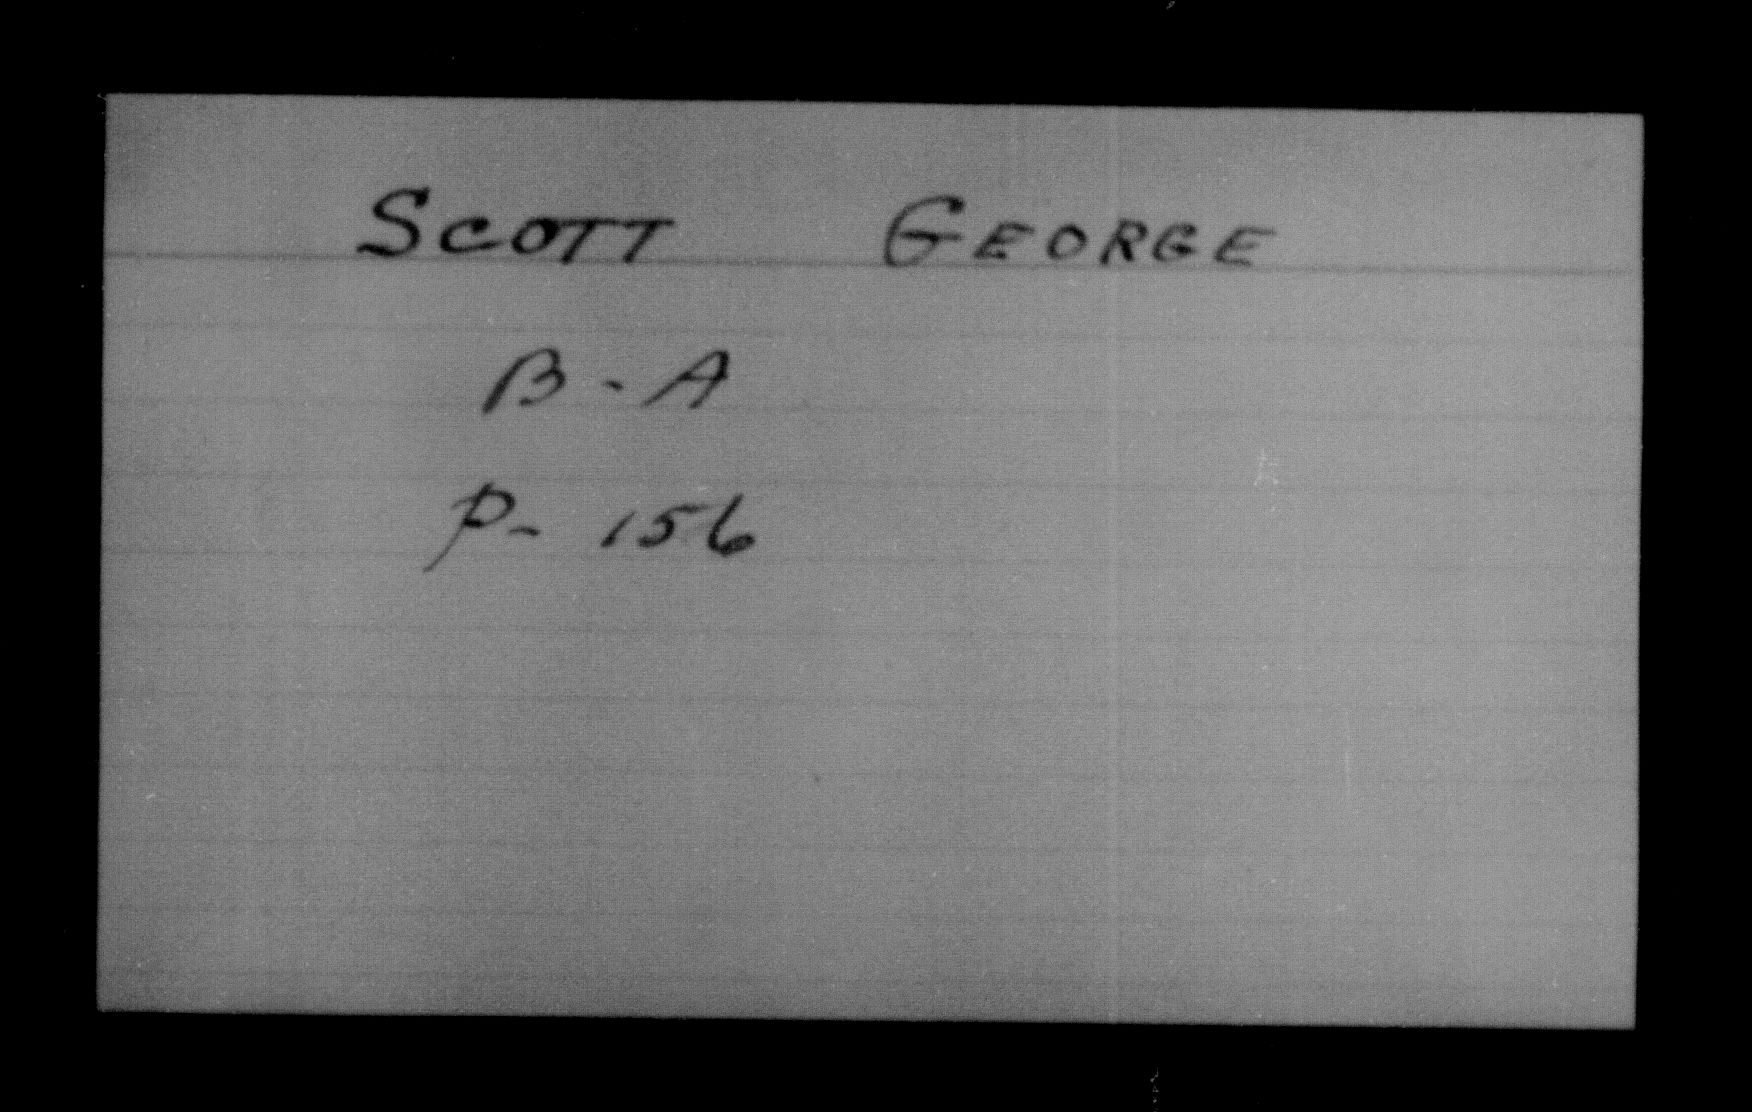 SCOTT GEORGE
B - A
P - 156